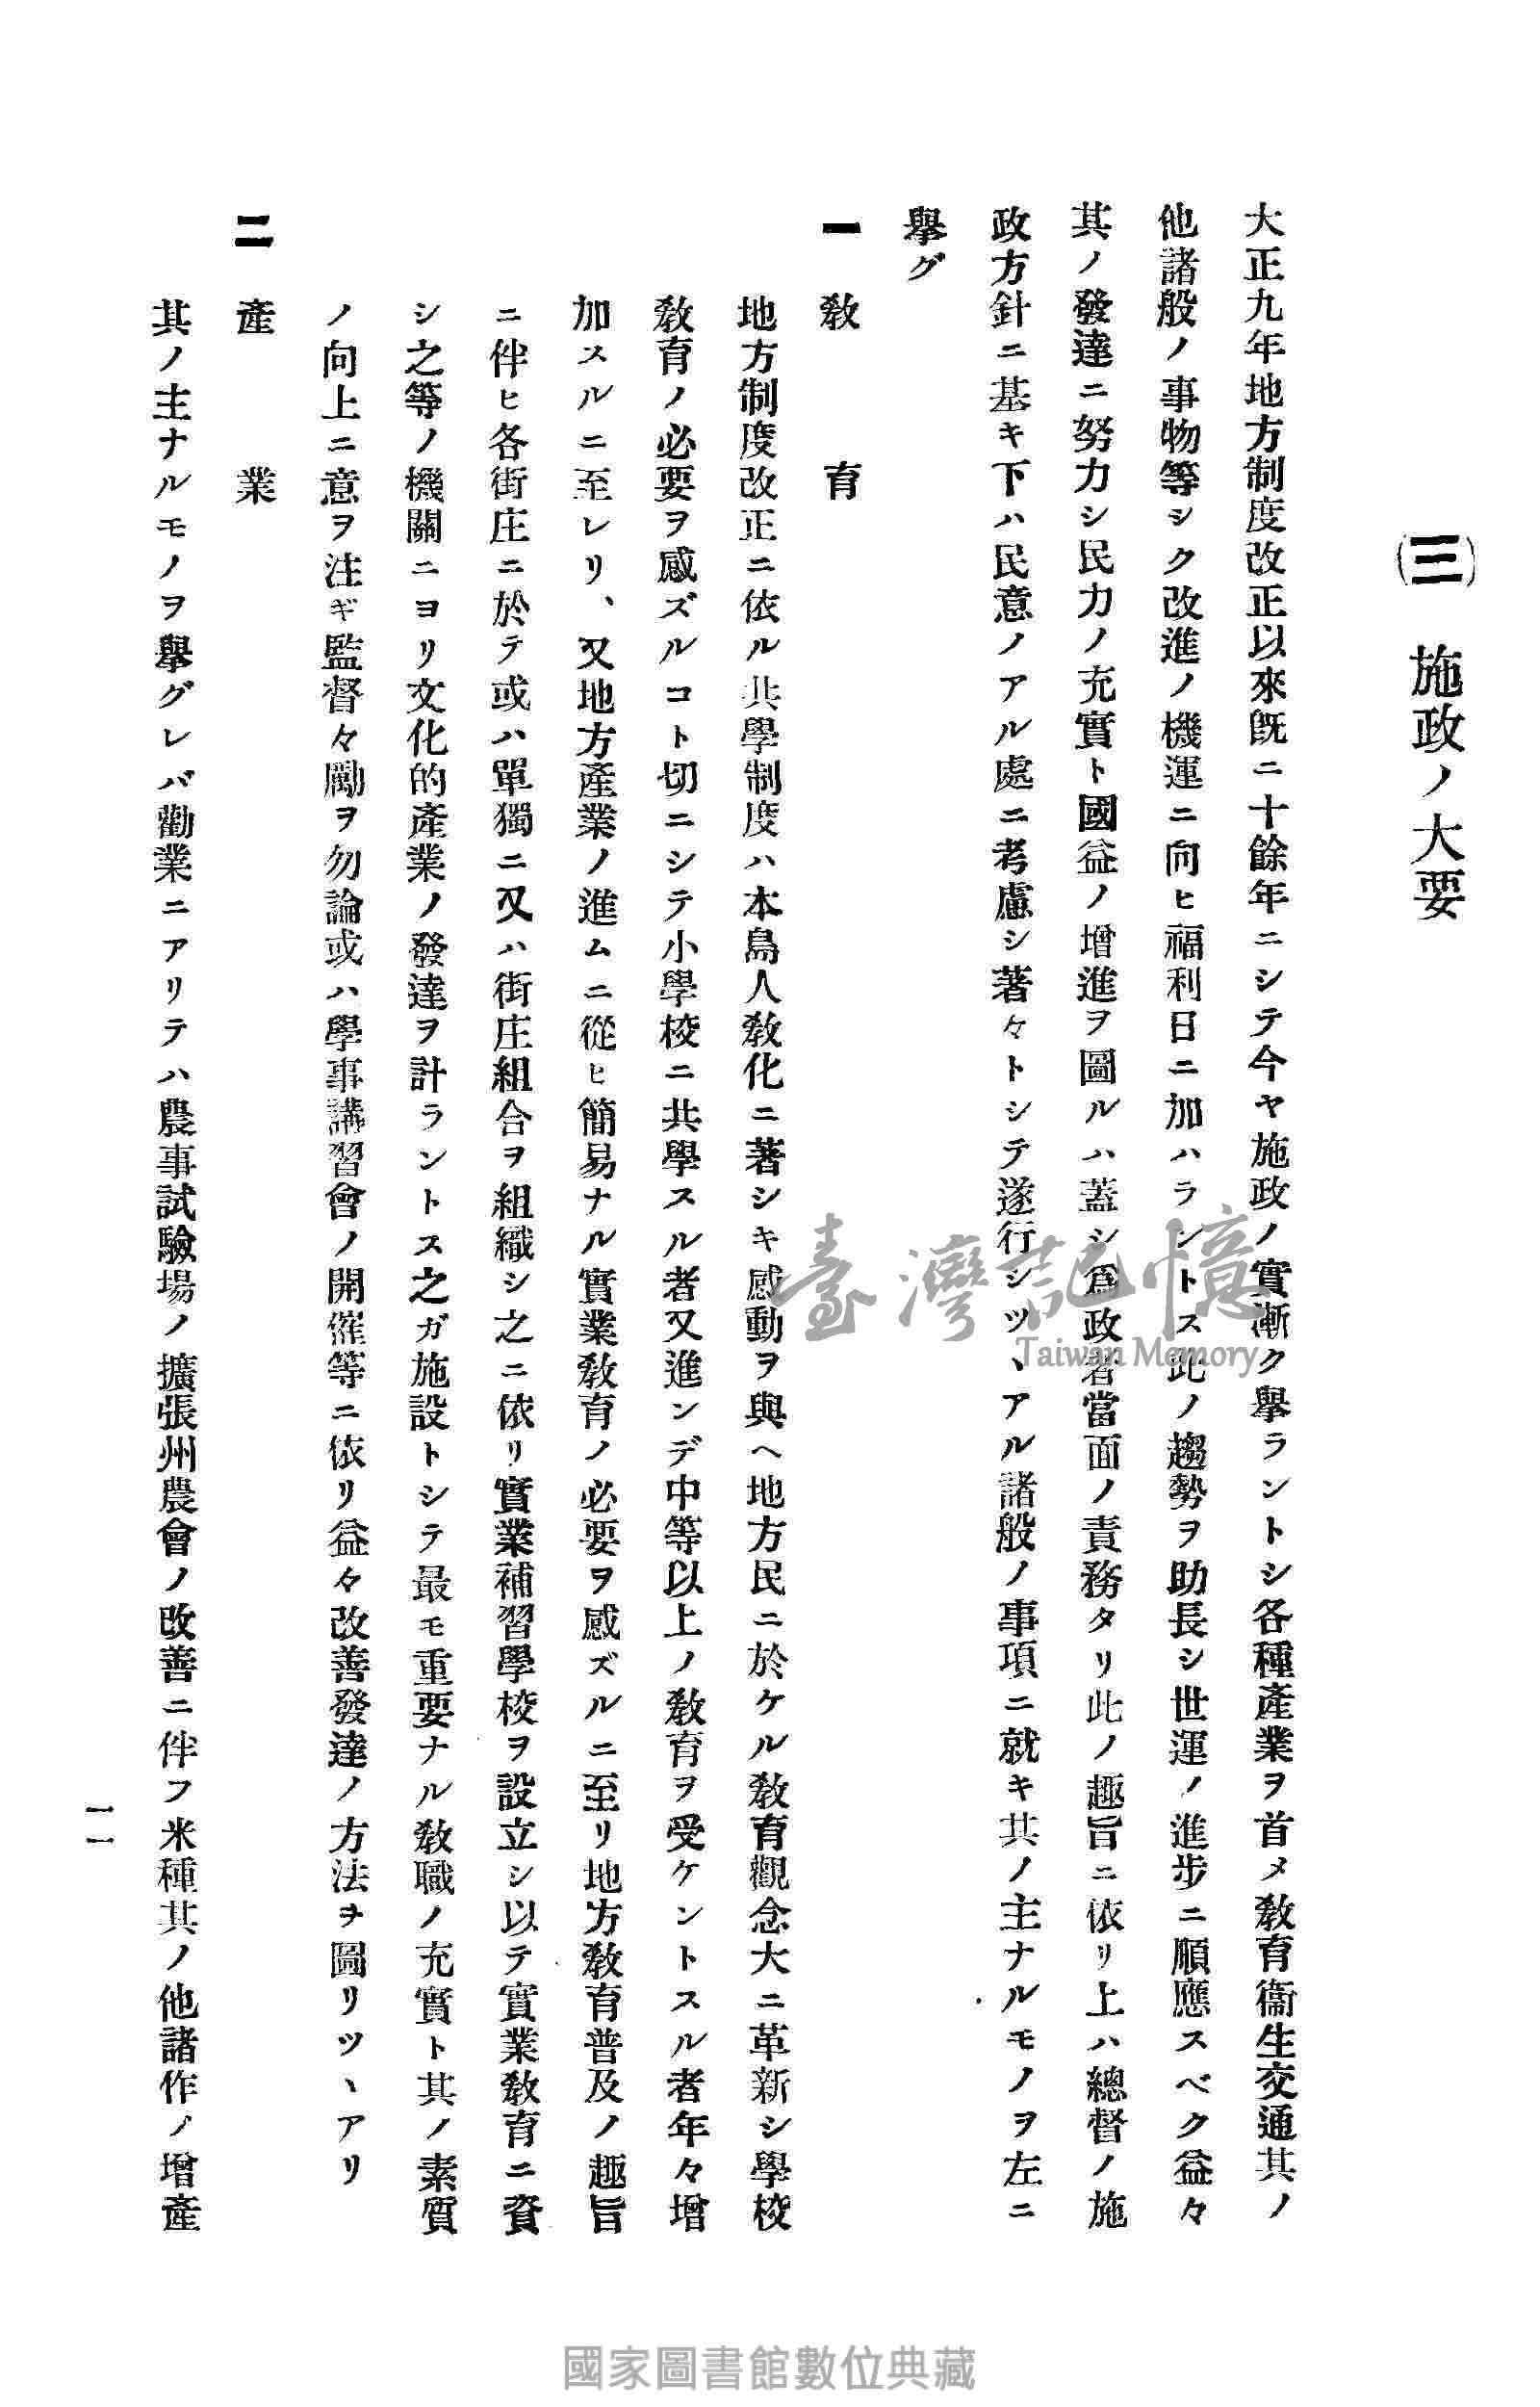 (三) 施政ノ大要
大正九年地方制度改正以來旣ニ十餘年ニシテ今ヤ施政ノ實漸ク擧ラントシ各種產業ヲ首メ敎育衞生交通其ノ
他諸般ノ事物等シク改進ノ機運ニ向ヒ福利日ニ加ハラントス此ノ趨勢ヲ助長シ世運ノ進步ニ順應スベク益々
其ノ發達ニ努力シ民力ノ充實ト國益ノ增進ヲ圖ルハ蓋シ爲政者當面ノ責務タリ此ノ趣旨ニ依リ上ハ總督ノ施
政方針ニ基キ下ハ民意ノアル處ニ考慮シ著々トシテ遂行シツヽアル諸般ノ事項ニ就キ其ノ主ナルモノヲ左ニ
擧グ
一 敎育
地方制度改正ニ依ル共學制度ハ本島人敎化ニ著シキ感動ヲ與ヘ地方民ニ於ケル敎育觀念大ニ革新シ學校
敎育ノ必要ヲ感ズルコト切ニシテ小學校ニ共學スル者又進ンデ中等以上ノ敎育ヲ受ケントスル者年々增
加スルニ至レリ、又地方產業ノ進ムニ從ヒ簡易ナル實業敎育ノ必要ヲ感ズルニ至リ地方敎育普及ノ趣旨
ニ伴ヒ各街庄ニ於テ或ハ單獨ニ又ハ街庄組合ヲ組織シ之ニ依リ實業補習學校ヲ設立シ以テ實業敎育ニ資
シ之等ノ機關ニヨリ文化的產業ノ發達ヲ計ラントス之ガ施設トシテ最モ重要ナル敎職ノ充實ト其ノ素質
ノ向上ニ意ヲ注ギ監督々勵ヲ勿論或ハ學事講習會ノ開催等ニ依リ益々改善發達ノ方法ヲ圖リツヽアリ
二 產業
其ノ主ナルモノヲ擧グレバ勸業ニアリテハ農事試驗場ノ擴張州農會ノ改善ニ伴フ米種其ノ他諸作ノ增產
一一
臺灣記憶
Taiwan Memory
國家圖書館數位典藏